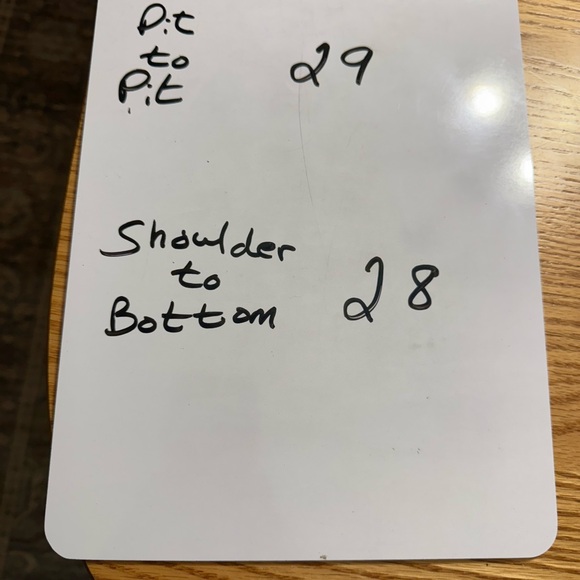 Pit
to
Pit 29
Shoulder
to 28
Bottom